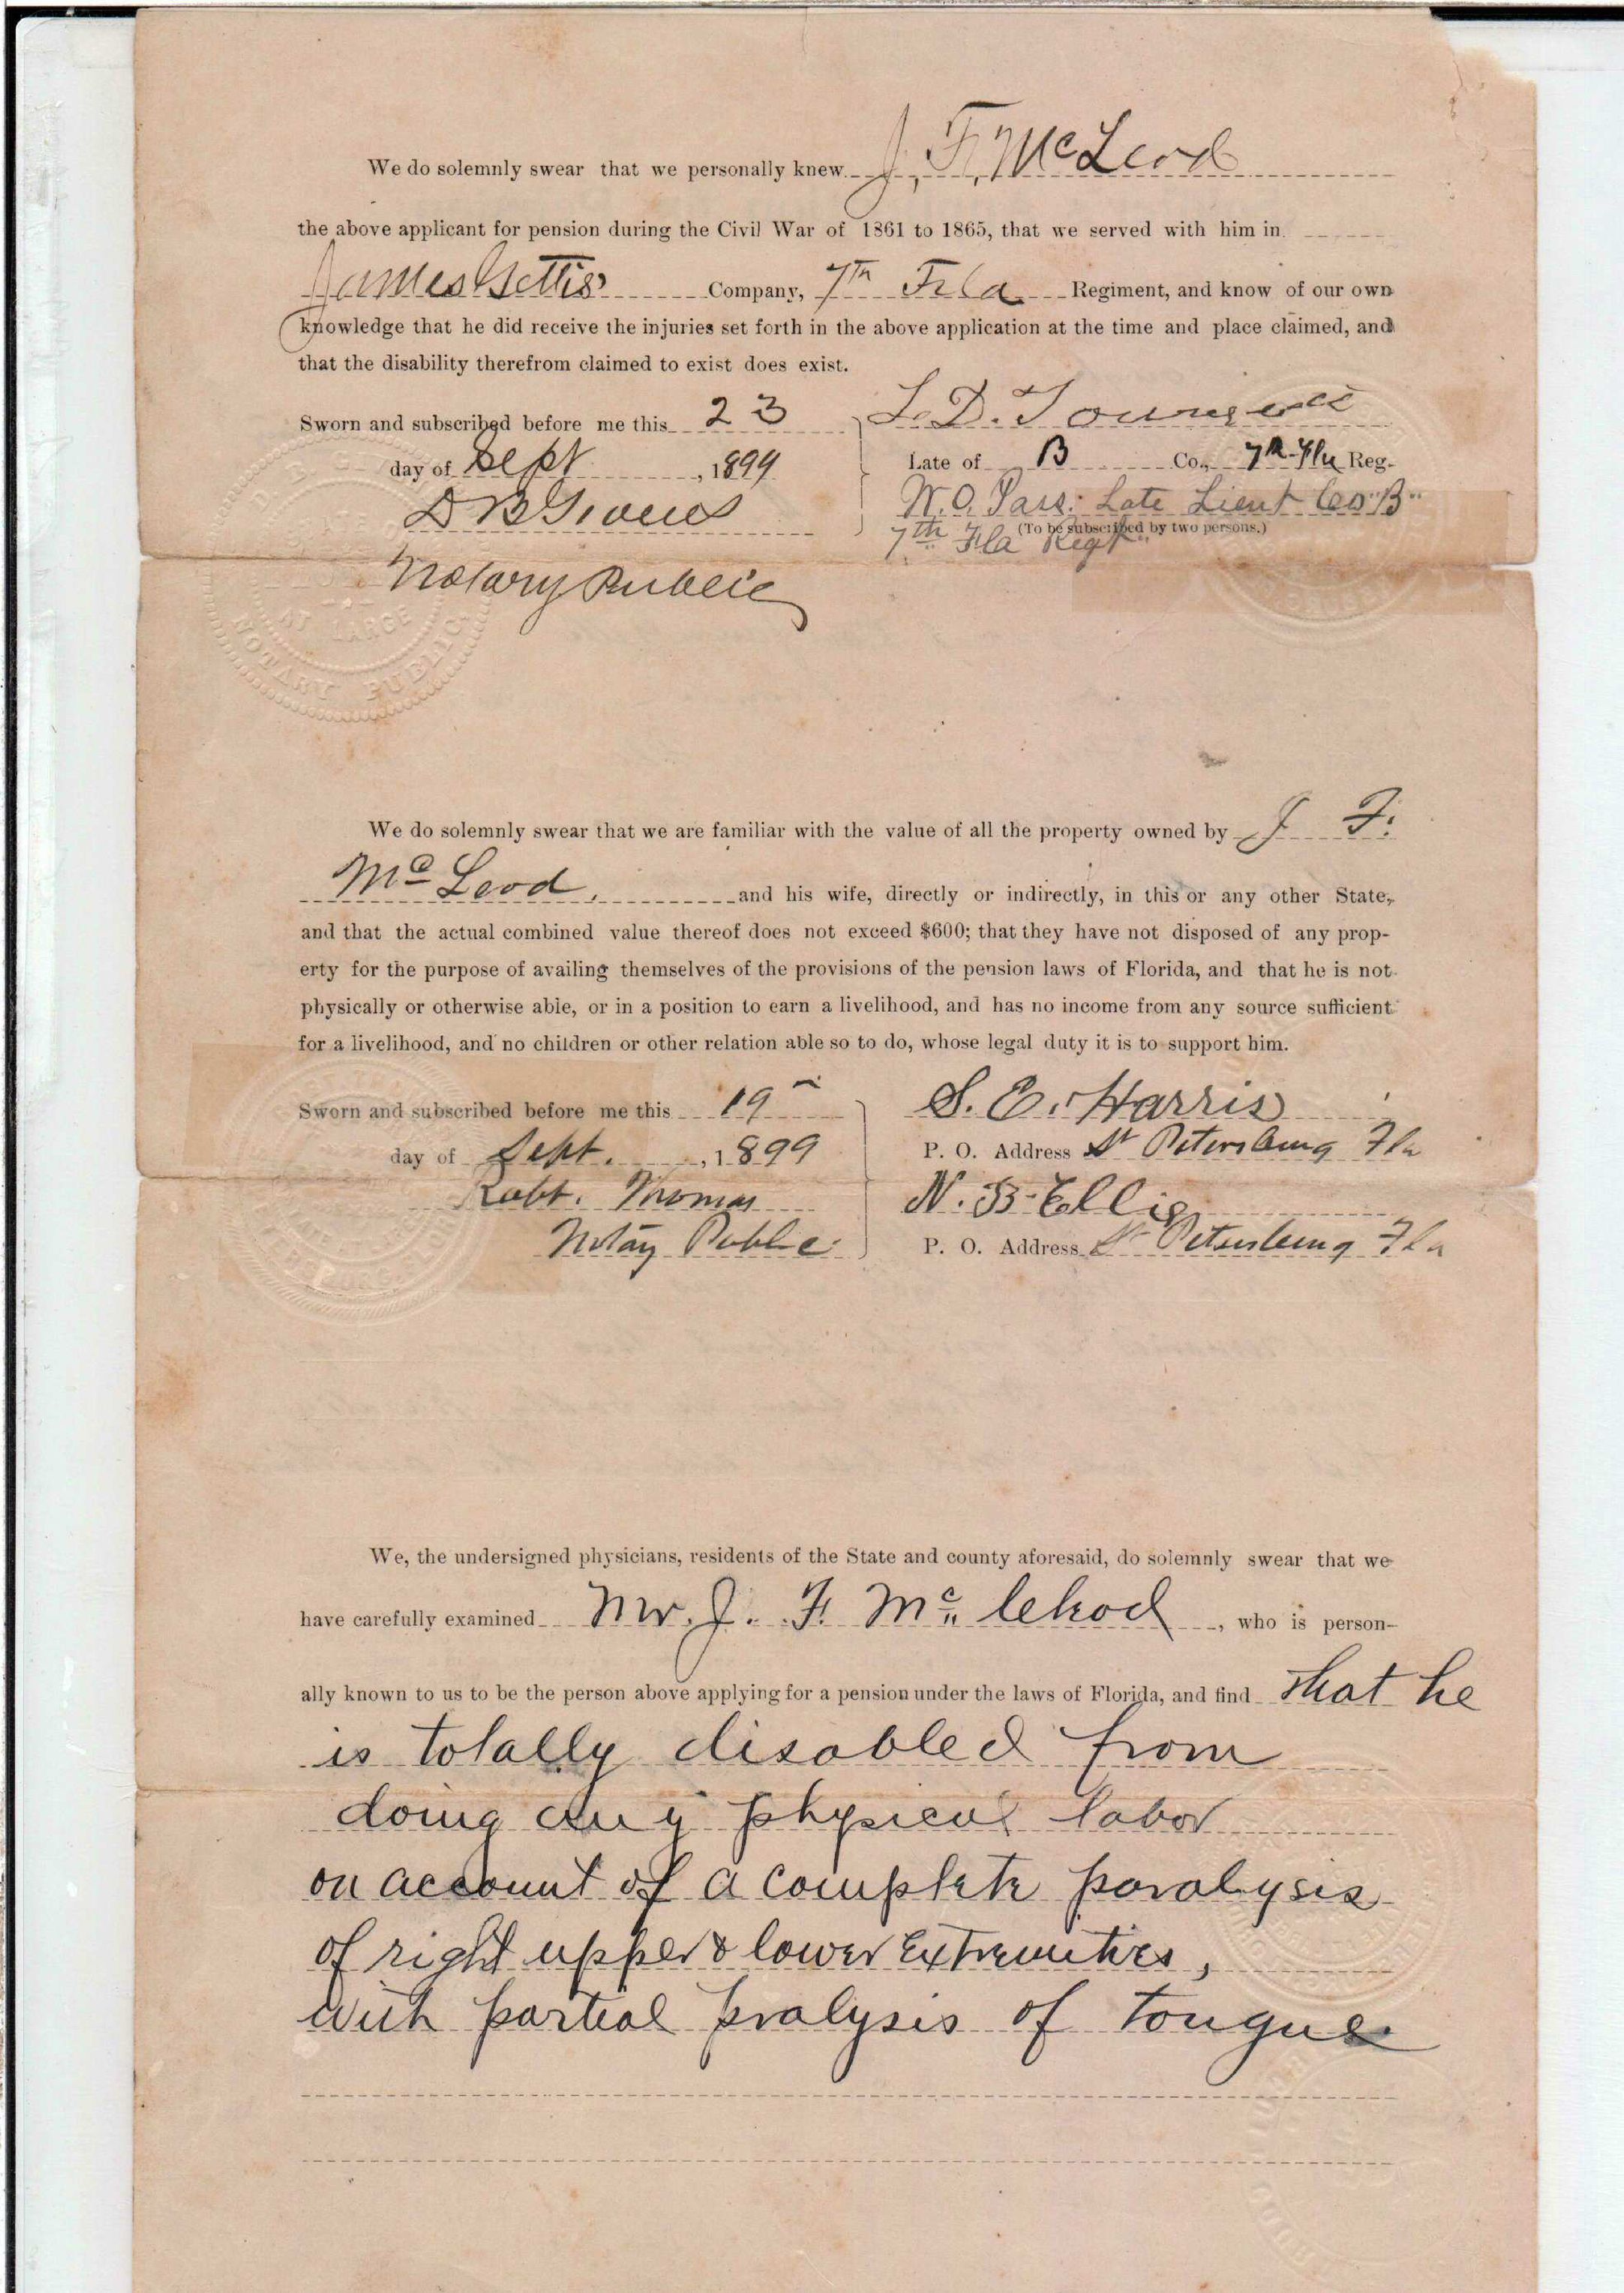 We do solemnly swear that we personally knew J. F. McLeod
the above applicant for pension during the Civil War of 1861 to 1865, that we served with him in
James Gettis Company, 7th Fla Regiment, and know of our own
knowledge that he did receive the injuries set forth in the above application at the time and place claimed, and
that the disability therefrom claimed to exist does exist.
Sworn and subscribed before me this 23
day of Sept, 1899
D B Givens
Notary Public
L. D.
Late of B Co., 7th Fla Reg.
W. O. Late Lieut Co "B"
(To be subscribed by two persons.)
7th Fla Regt
AT LARGE
NOTARY PUBLIC
We do solemnly swear that we are familiar with the value of all the property owned by J F.
Mc Leod, and his wife, directly or indirectly, in this or any other State,
and that the actual combined value thereof does not exceed $600; that they have not disposed of any prop-
erty for the purpose of availing themselves of the provisions of the pension laws of Florida, and that he is not
physically or otherwise able, or in a position to earn a livelihood, and has no income from any source sufficient
for a livelihood, and no children or other relation able so to do, whose legal duty it is to support him.
Sworn and subscribed before me this 19
day of Sept., 1899
Robt. Thomas
Notary Public
S. E. Harris
P. O. Address St Petersburg Fla
N. B. Ellis
P. O. Address St Petersburg Fla
We, the undersigned physicians, residents of the State and county aforesaid, do solemnly swear that we
have carefully examined Mr. J. F. Mc lehod, who is person-
ally known to us to be the person above applying for a pension under the laws of Florida, and find that he
is totally disabled from
doing any physical labor
on account of a complete paralysis
of right upper & lower extremities,
with partial pralysis of tongue.